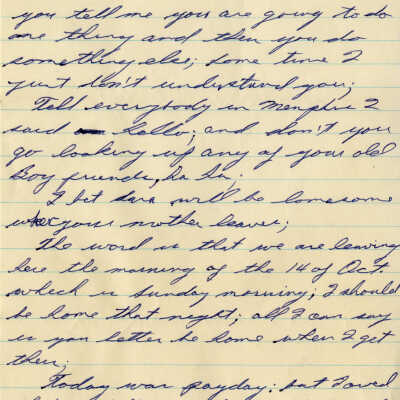 you tell me you are going to do
one thing and then you do
something else; some time I
just don't understand you;
Tell everybody in Memphis I
said Hello; and don't you
go looking up any of your old
Boy friends, ha ha;
I bet Sara will be lonesome
when your mother leaves;
The word is that we are leaving
here the morning of the 14 of Oct.
wheck is Sunday morning; I should
be home that night; all I can say
is you better be home when I get
there;
Today was payday; but I owed